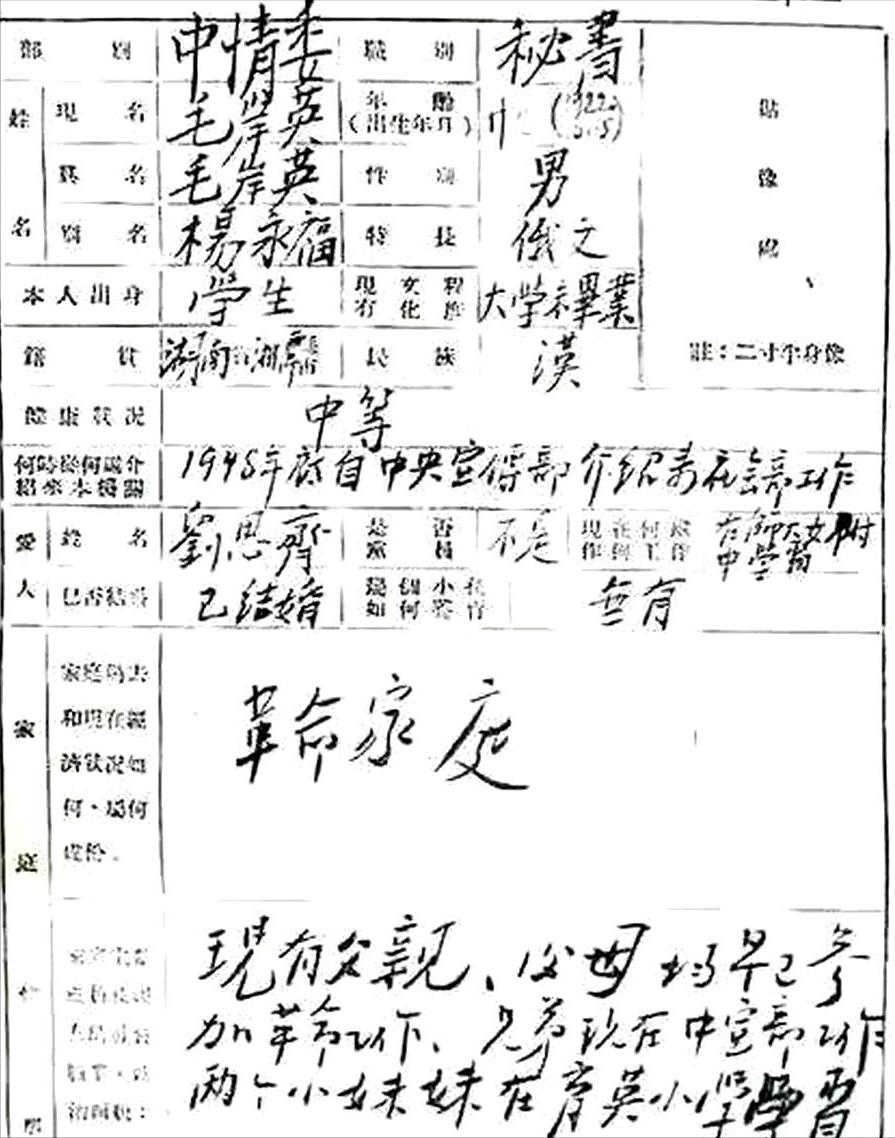 部別 中情委 職別 秘書
姓名 現名 毛岸英 年齡(出生年月) 廿 (1922
貼像處
真名 毛岸英 性別 男
別名 楊永福 特長 俄文
本人出身 學生 現有文化程度 大学未畢業
籍貫 湖南 湘 民族 漢
註：二寸半身像
健康狀況 中等
何時從何處介紹來本機關 自中央宣傳部介紹來 部工作
愛人 姓名 劉思齊 是否黨員 不是 現在何處作何工作 在師大女附中學習
已否結婚 已結婚 幾個小孩如何教育 無有
家庭
家庭過去和現在經濟狀況如何，屬何成份。
革命家庭
現有父親、父母均早已參
加革命工作、兄弟現在中宣部工作
两个小妹妹在育英小學學習